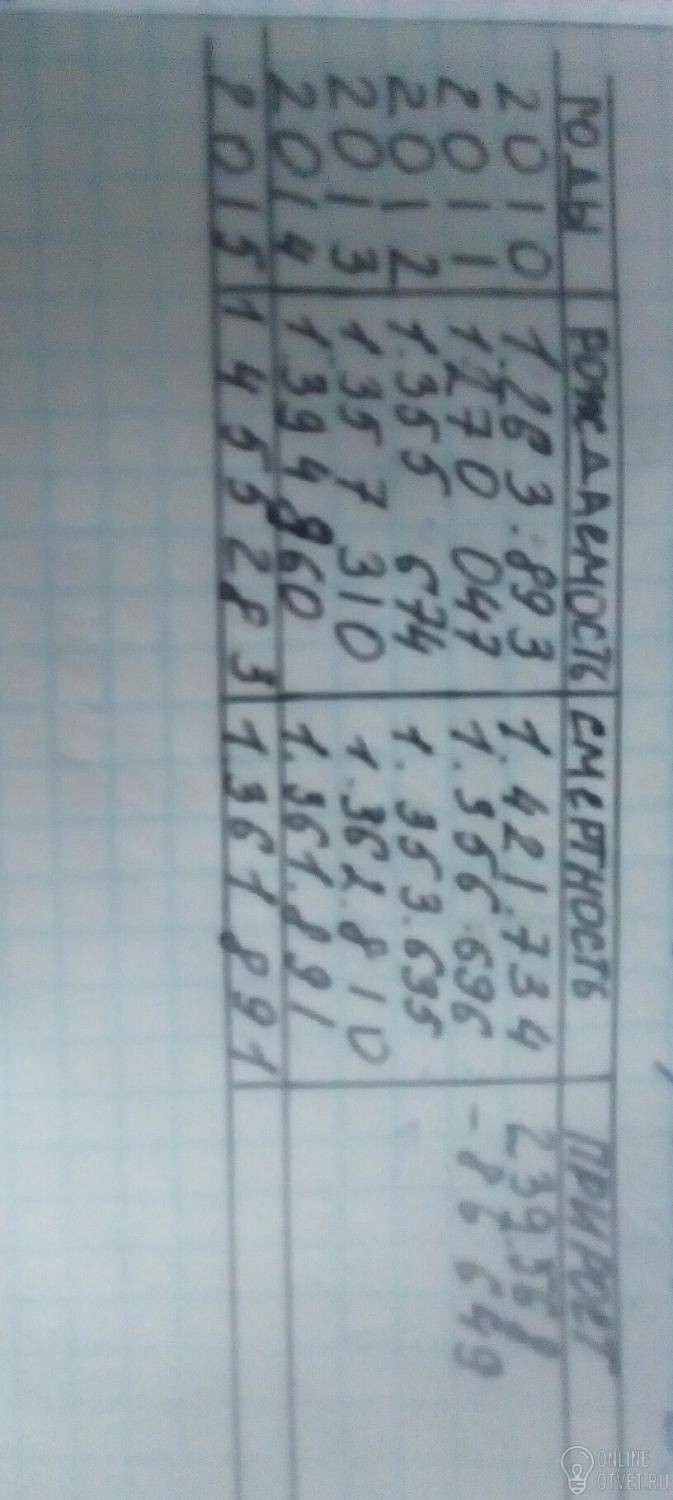 ГОДЫ РОЖДАЕМОСТЬ СМЕРТНОСТЬ ПРИРОСТ
2010 1.283.893 1.421.734 239568
2011 1.270 047 1.356.696 -86 649
2012 1.355 674 1.353.635
2013 1.357 310 1.361.810
2014 1.394 860 1.361.891
2015 1455283 1361891
ONLINE
OTVET.RU